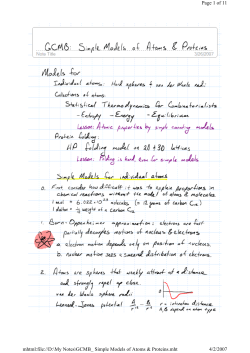 Page 1 of 11
GCMB: Simple Models of Atoms & Proteins
Note Title
3/26/2007
Models for
Individual atoms: Hard spheres & van der Waals radii
Collections of atoms:
Statistical Thermodynamics for Combinatorialists
-Entropy -Energy -Equilibrium
Lesson: Atomic properties by simple counting models
Protein folding:
HP folding model on 2D & 3D lattices
Lesson: Folding is hard, even for simple models
Simple Models for individual atoms
0. First, consider how difficult it was to explain proportions in
chemical reactions without the model of atoms & molecules.
1 mol = 6.022 × 10²³ molecules (≈ 12 gms of carbon C₁₂)
1 dalton = 1/12 weight of a carbon C₁₂
1. Born-Oppenheimer approximation: electrons are fast
partially decouples motions of nucleus & electrons
a. electron motion depends only on position of nucleus.
b. nuclear motion sees a smeared distribution of electrons.
2. Atoms are spheres that weakly attract at a distance
and strongly repel up close.
van der Waals sphere radii
Lennard-Jones potential A/r¹² - B/r⁶
r = interatom distance
A, B depend on atom types
mhtml:file://D:\My Notes\GCMB_ Simple Models of Atoms & Proteins.mht
4/2/2007